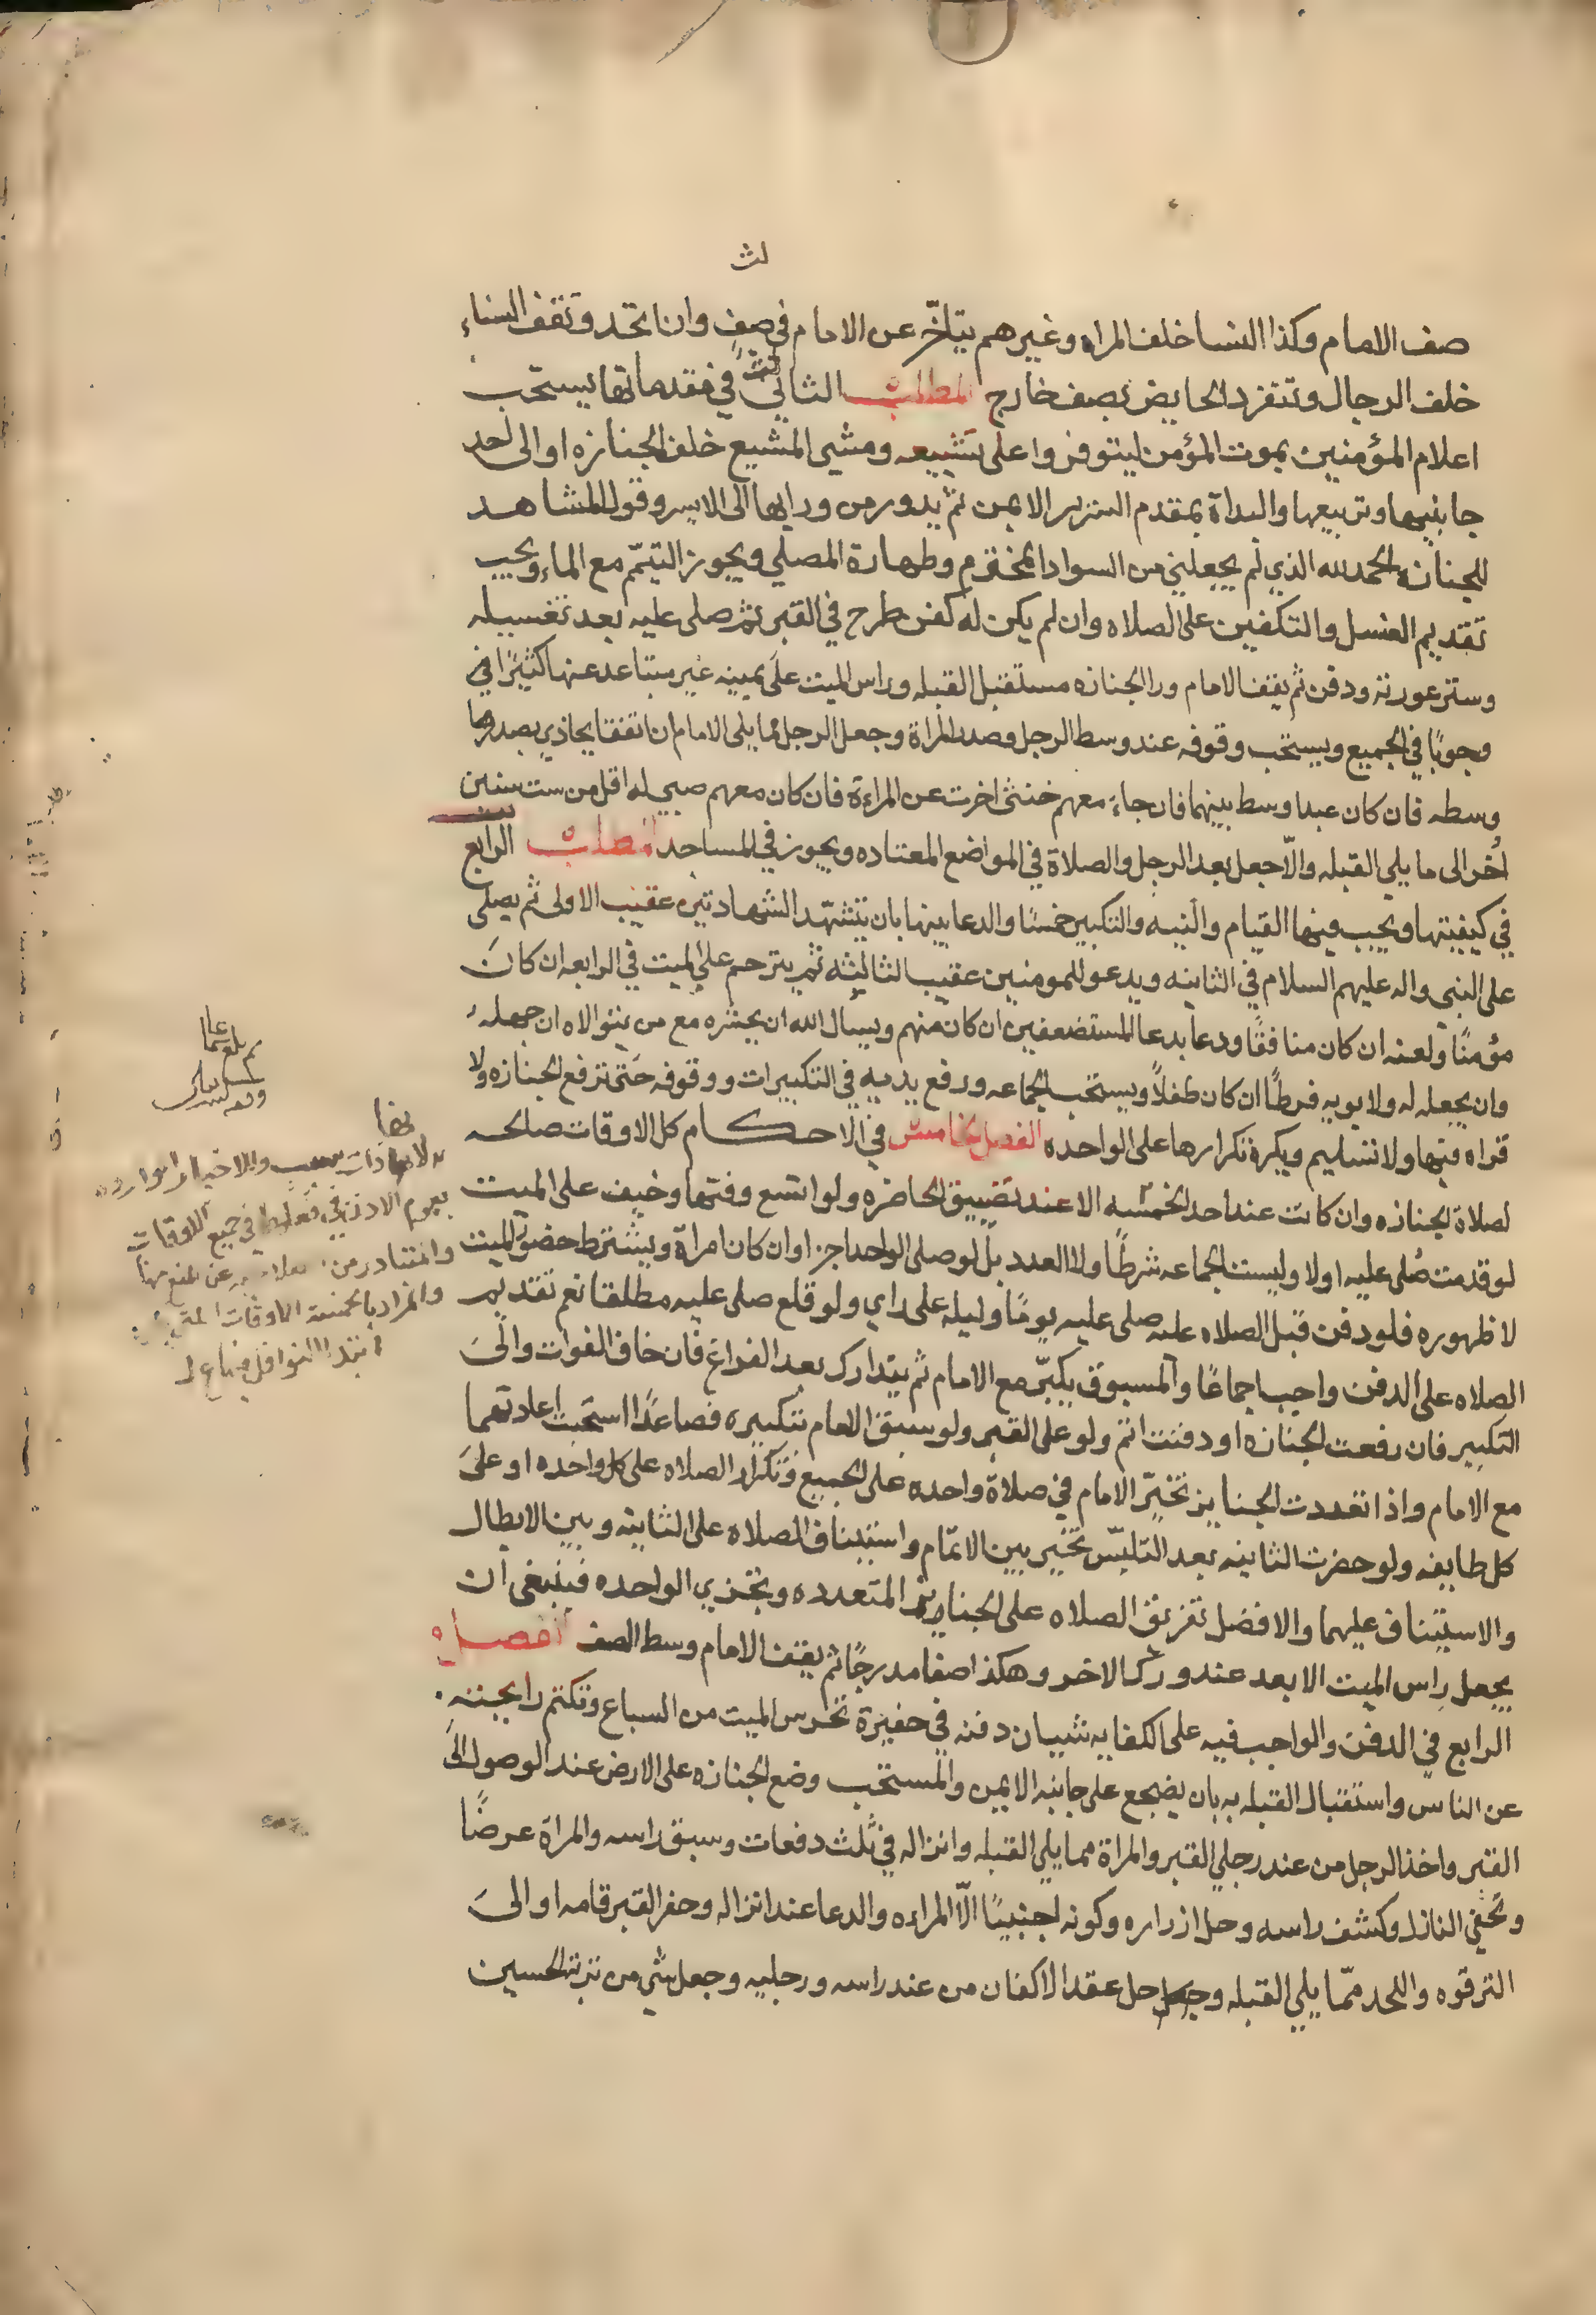 لث
صف الامام وكذا النسا خلف المراه وغيرهم يتاخّر عن الامام في صفٍ وان اتحد وتقف النساء
خلف الرجال وتتفرد الحايض بصف خارج المطلب الثالث في مقدماتها يستحب
اعلام المؤمنين بموت المؤمن ليتوفروا على تشييعه ومشي المشيع خلف الجنازه او الى احد
جانبيها وتربيعها والبدأة بمقدم السرير الايمن ثم يدور من ورايها الى الايسر وقول المشاهد
للجنازة الحمد لله الذي لم يجعلني من السواد المخترم وطهارة المصلي ويجوز التيمّم مع الماء ويجب
تقديم الغسل والتكفين على الصلاه وان لم يكن له كفن طرح في القبر ثم صلى عليه بعد تغسيله
وستر عورته ودفن ثم يقف الامام ورا الجنازه مستقبل القبله وراس الميت على يمينه غير متباعد عنها كثيرًا في
وجوبًا في الجميع ويستحب وقوفه عند وسط الرجل وصدر المراة وجعل الرجل مما يلي الامام ان اتفقا يحاذي بصدرها
وسطه فان كان عبدا وسط بينهما فان جاء معهم خنثى اخرت عن المراءة فان كان معهم صبي له اقل من ست سنين
أخر الى ما يلي القبله والّا جعل بعد الرجل والصلاة في المواضع المعتاده ويجوز في المساجد المطلب الرابع
في كيفيتها ويجب فيها القيام والنيه والتكبير خمسًا والدعا بينها بان يتشهّد الشهادتين عقيب الاولى ثم يصلي
على النبي واله عليهم السلام في الثانيه ويدعو للمومنين عقيب الثالثه ثم يترحم على الميت في الرابعه ان كان
مؤمنًا ولعنه ان كان منافقًا ودعا بدعا المستضعفين ان كان منهم ويسال الله ان يحشره مع من يتوالاه ان جهله
وان يجعله له ولابويه فرطًا ان كان طفلاً ويستحب الجماعه ورفع يديه في التكبيرات ووقوفه حتى ترفع الجنازه ولا
قراه فيها ولا تسليم ويكره تكرارها على الواحده الفصل الخامس في الاحكام كل الاوقات صالحه
لصلاة الجنازه وان كانت عند احد الخمسه الا عند تضييق الحاضره ولو اتسع وقتها وخيف على الميت
لو قدمت صُلى عليه اولا وليست الجماعه شرطًا ولا العدد بل لو صلى الواحد اجزا وان كان امراة ويشترط حضور الميت
لا ظهوره فلو دفن قبل الصلاه عليه صلى عليه يومًا وليله على راي ولو قلع صلى عليه مطلقا نعم تقديم
الصلاه على الدفن واجب اجماعًا والمسبوق يكبّر مع الامام ثم يتدارك بعد الفراغ فان خاف الفوات والى
التكبير فان رفعت الجنازه او دفنت اتم ولو على القبر ولو سبق الامام بتكبيره فصاعدًا استحب اعادتهما
مع الامام واذا تعددت الجنايز تخيّر الامام في صلاة واحده على الجميع وتكرار الصلاه على كل واحده او على
كل طايفه ولو حضرت الثانيه بعد التلبّس تخيّر بين الاتمام واستيناف الصلاه على الثانيه وبين الابطال
والاستيناف عليهما والافضل تفريق الصلاه على الجنايز المتعدده وتجزي الواحده فينبغي ان
يجعل راس الميت الابعد عند ورك الاخر وهكذا صفا مدرجًا ثم يقف الامام وسط الصف الفصل
الرابع في الدفن والواجب فيه على الكفايه شيان دفنه في حفيرة تحرس الميت من السباع وتكتم رايحته
عن الناس واستقبال القبله به بان يضجع على جانبه الايمن والمستحب وضع الجنازه على الارض عند الوصول الى
القبر واخذ الرجل من عند رجلي القبر والمراة مما يلي القبله وانزاله في ثلث دفعات وسبق راسه والمراة عرضًا
وتحفي النازل وكشف راسه وحل ازراره وكونه اجنبيًا الّا المراءه والدعا عند انزاله وحفر القبر قامه او الى
الترقوه واللحد ممّا يلي القبله وحل عقد الاكفان من عند راسه ورجليه وجعل شي من تربة الحسين
في جميع الاوقات
والمراد بالخمسة الاوقات
ابتدا النوافل فيها